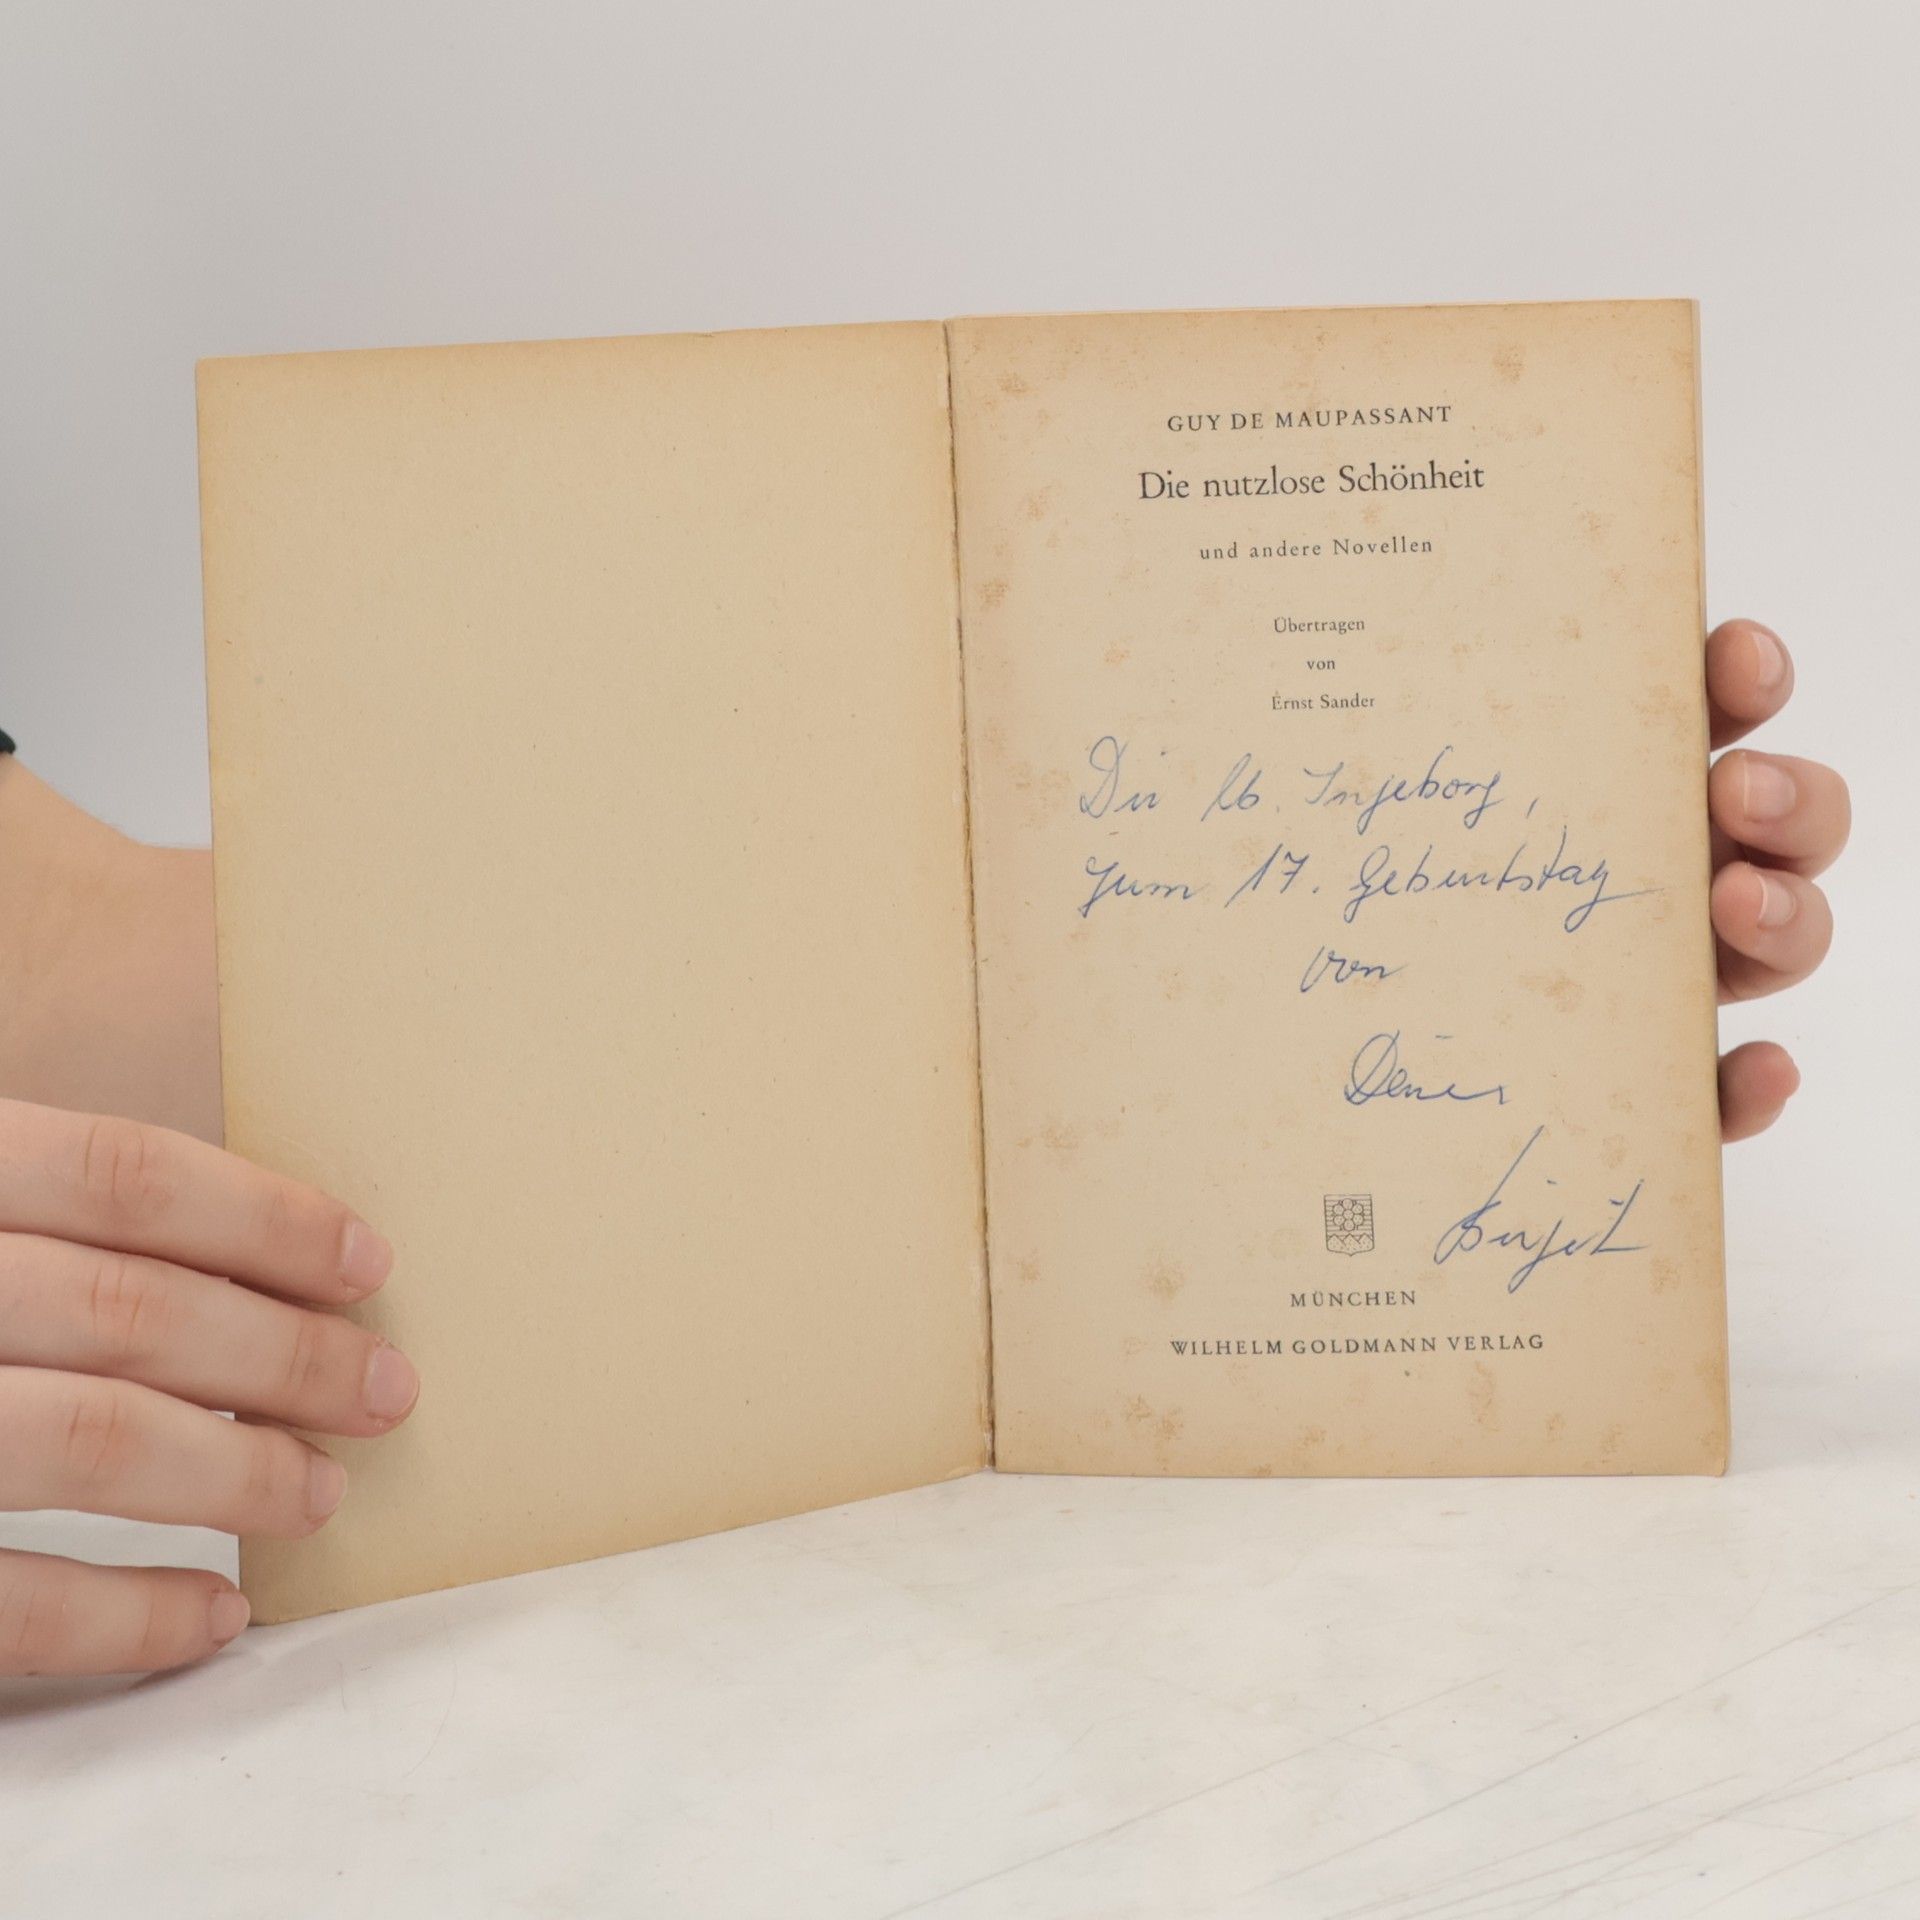 GUY DE MAUPASSANT
Die nutzlose Schönheit
und andere Novellen
Übertragen
von
Ernst Sander
Dir lb. Ingeborg,
zum 17. Geburtstag
von
Deiner
Birgit
MÜNCHEN
WILHELM GOLDMANN VERLAG